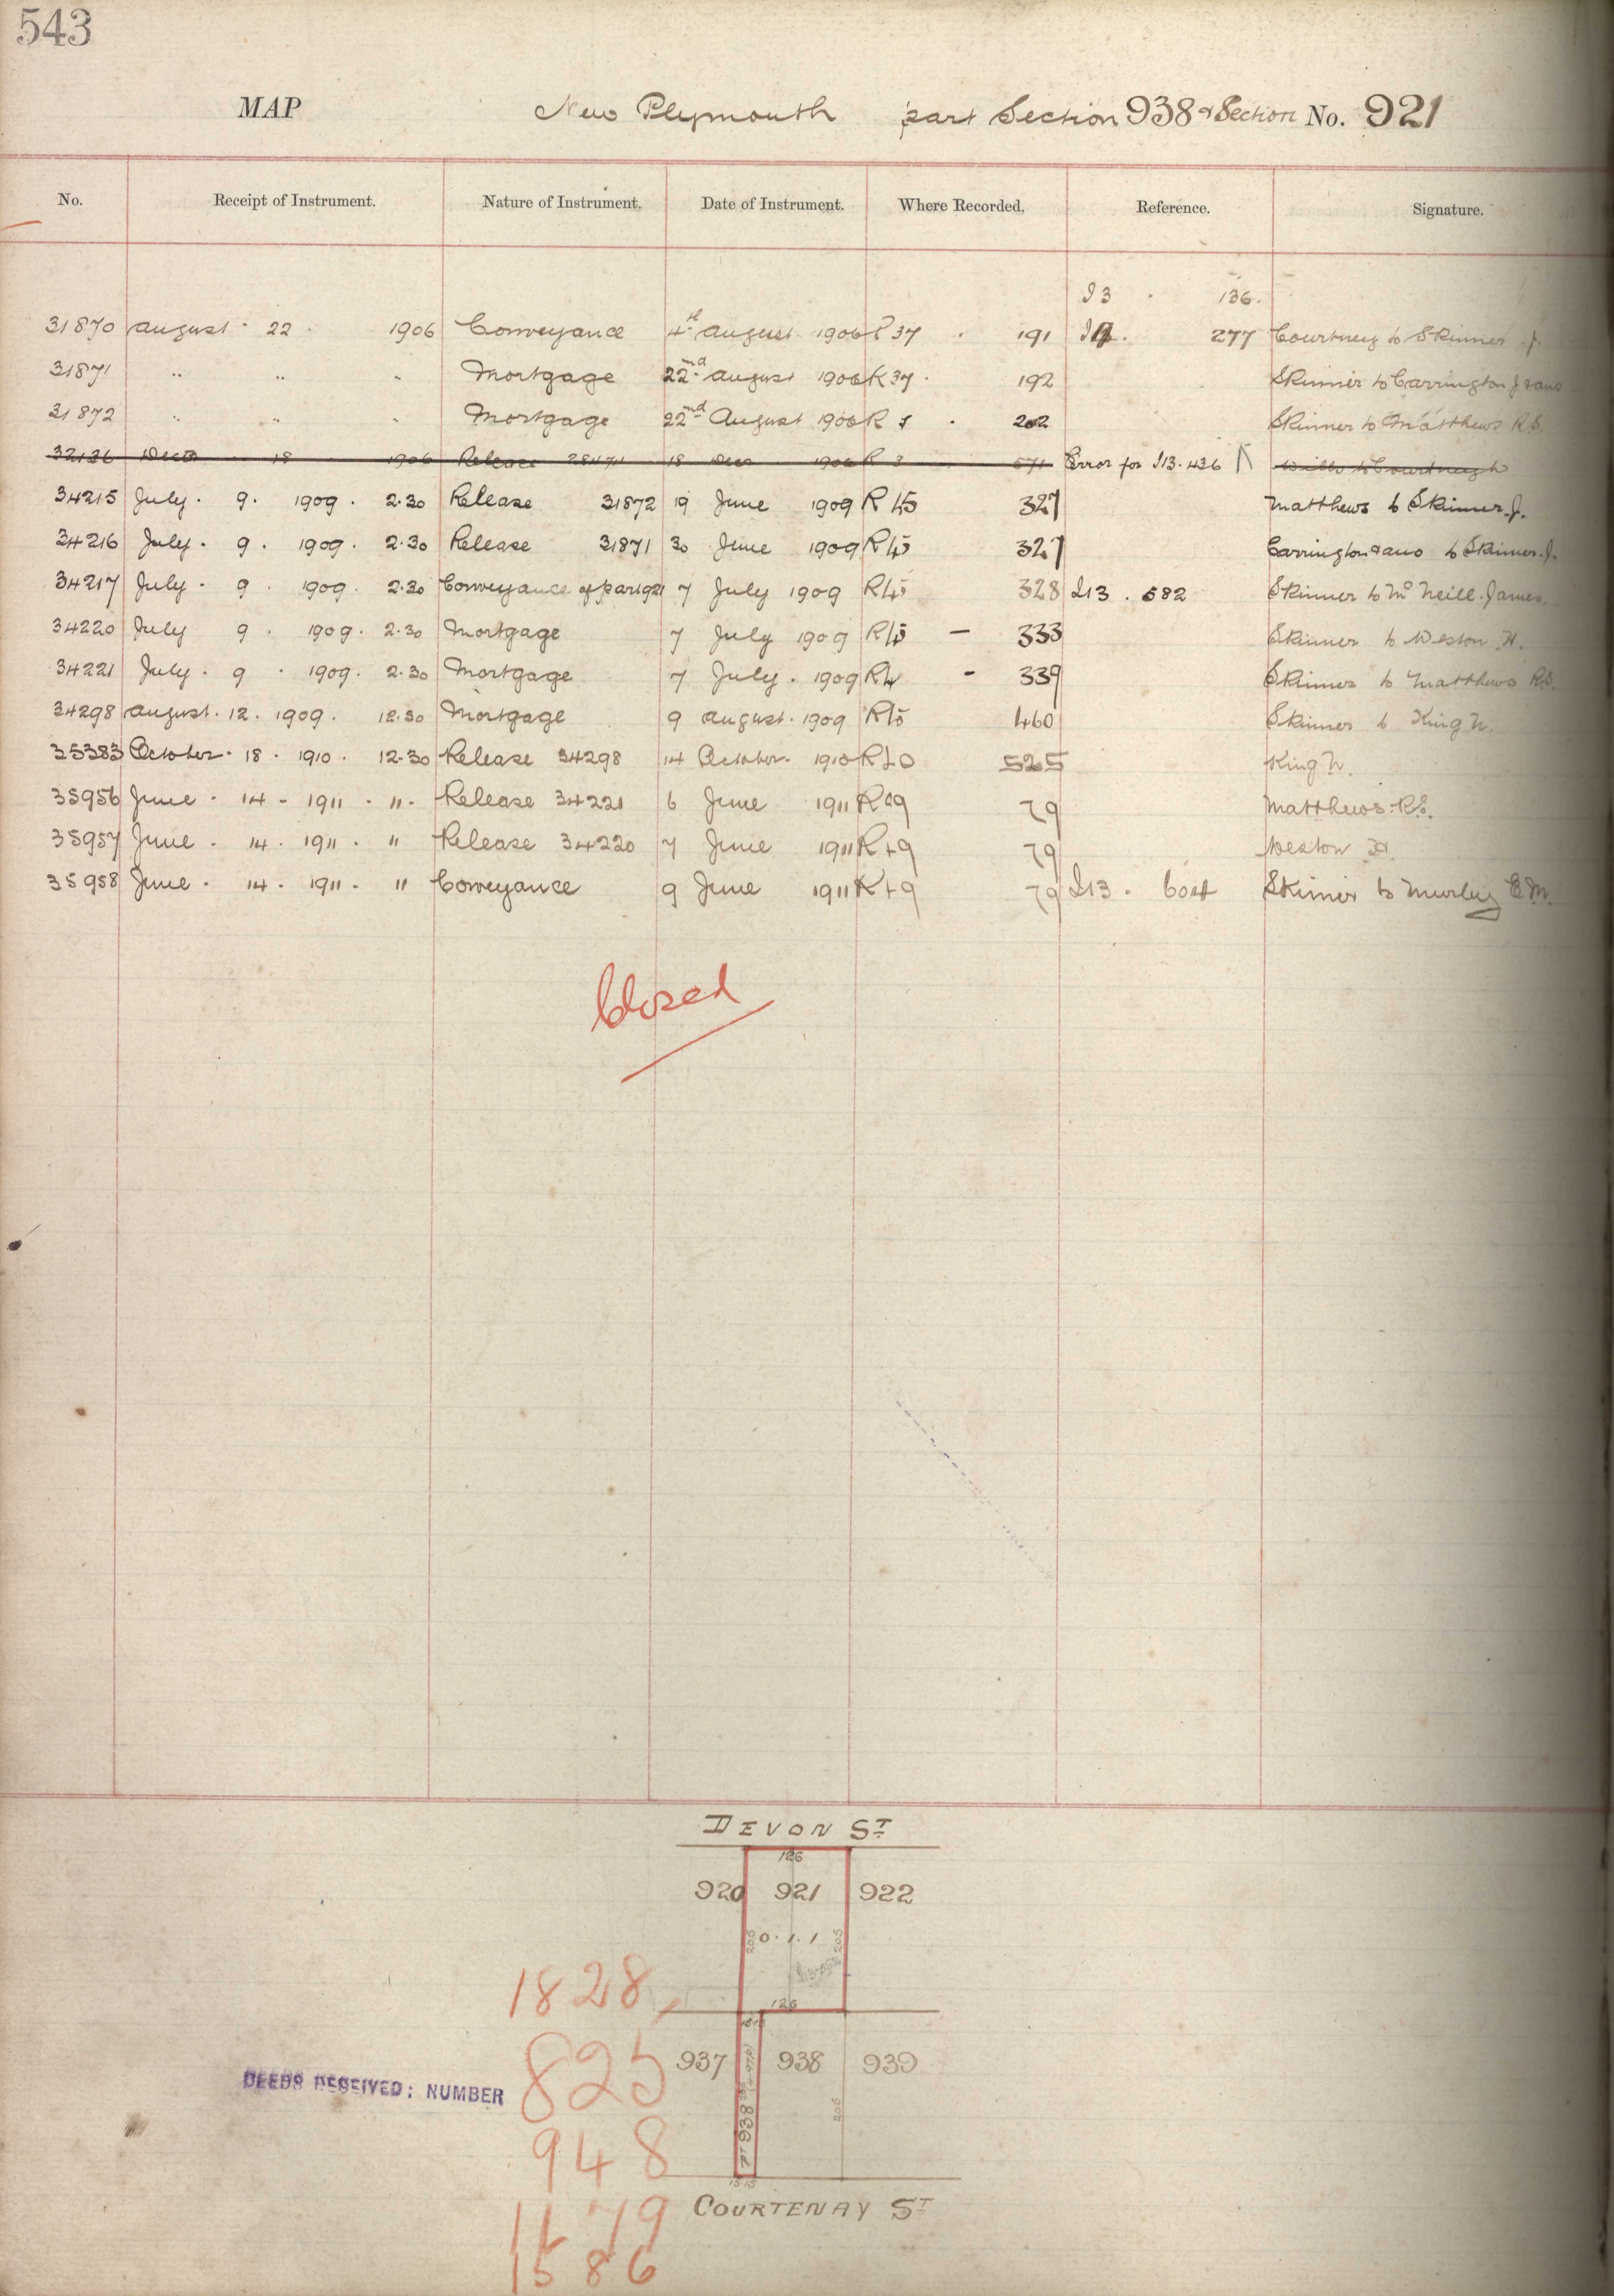 543
MAP New Plymouth part Section 938 & Section No. 921
No. Receipt of Instrument. Nature of Instrument. Date of Instrument. Where Recorded. Reference. Signature.
I3 · 136.
31870 August · 22 · 1906 Conveyance 4th August 1906 37 · 191 277 Courtney to Skinner J.
31871 " " " Mortgage 22nd August 1906 R 37 · 192 Skinner to Carrington J & ano
31872 " " " Mortgage 22nd August 1906 R · 202 Skinner to Matthews R.S.
32136 Decr 18 1906 Release 18 Decr 1906 R 3 571 Error for I13·436 Wills to Courtney
34215 July · 9 · 1909 · 2·30 Release 31872 19 June 1909 R 45 327 Matthews to Skinner J.
34216 July · 9 · 1909 · 2·30 Release 31871 30 June 1909 R 45 327 Carrington & ano to Skinner J.
34217 July · 9 · 1909 · 2·30 Conveyance of part 921 7 July 1909 R 45 328 I13 · 582 Skinner to McNeill James
34220 July 9 · 1909 · 2·30 Mortgage 7 July 1909 R 45 – 333 Skinner to Weston H.
34221 July · 9 · 1909 · 2·30 Mortgage 7 July · 1909 – 339 Skinner to Matthews R.S.
34298 August · 12 · 1909 · 12·30 Mortgage 9 August · 1909 460 Skinner to King N.
35383 October · 18 · 1910 · 12·30 Release 34298 14 October 1910 525 King N.
35956 June · 14 – 1911 · 11 · Release 34221 6 June 1911 79 Matthews R.S.
35957 June · 14 · 1911 · " Release 34220 7 June 1911 79 Weston H.
35958 June · 14 · 1911 · " Conveyance 9 June 1911 79 I13 · 604 Skinner to Murley E.M.
Closed
DEVON ST
126
920 921 922
205 0·1·1 205
126
1828
937 938 939
DEEDS RECEIVED: NUMBER 825
PT 938
205
948
15 15
COURTENAY ST
1179
1586